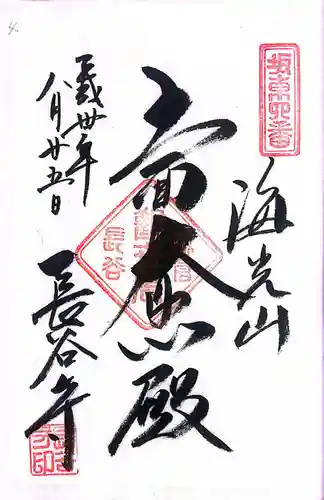 坂東四番
海光山
十一面大悲殿
長谷
平成卅年
八月廿五日
長谷寺
4